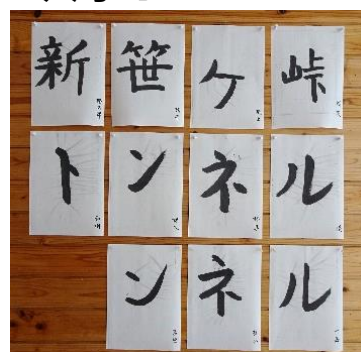 新笹ヶ峠
トンネル
ンネル